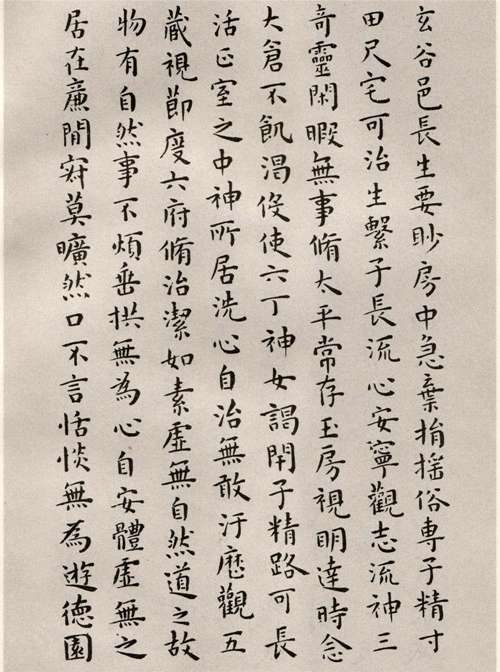 玄谷邑長生要眇房中急棄捐搖俗専子精寸
田尺宅可治生繫子長流心安寧觀志流神三
奇靈閑暇無事脩太平常存玉房視明達時念
大倉不飢渴伇使六丁神女謁閇子精路可長
活正室之中神所居洗心自治無敢汙歷觀五
藏視節度六府脩治潔如素虛無自然道之故
物有自然事不煩垂拱無為心自安體虛無之
居在廉閒寂莫曠然口不言恬惔無為遊德園